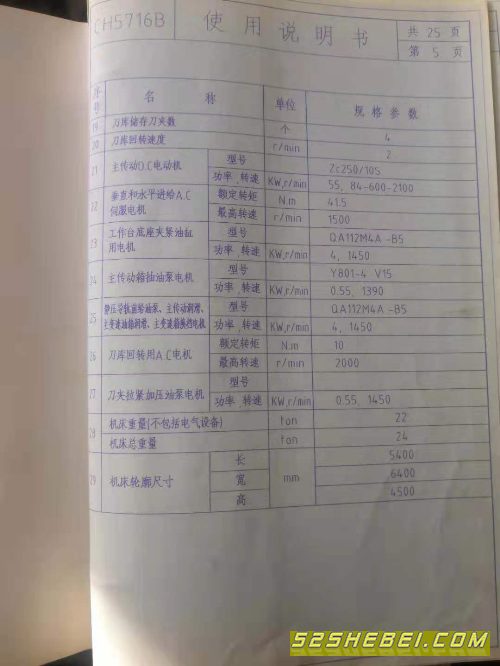 CH5716B 使用说明书 共 25 页
第 5 页
序号 名 称 单位 规格参数
19 刀库储存刀夹数 个 4
20 刀库回转速度 r/min 2
21 主传动D.C电动机 型号 Zc250/10S
功率,转速 KW,r/min 55, 84-600-2100
22 垂直和水平进给A.C伺服电机 额定转矩 N.m 41.5
最高转速 r/min 1500
23 工作台底座夹紧油缸用电机 型号 QA112M4A-B5
功率,转速 KW,r/min 4, 1450
24 主传动箱抽油泵电机 型号 Y801-4 V15
功率,转速 KW,r/min 0.55, 1390
25 静压导轨面给油泵、主传动润滑、主变速油箱润滑、主变速箱换挡电机 型号 QA112M4A-B5
功率,转速 KW,r/min 4, 1450
26 刀库回转用A.C电机 额定转矩 N.m 10
最高转速 r/min 2000
27 刀夹拉紧加压油泵电机 型号
功率,转速 KW,r/min 0.55, 1450
28 机床重量(不包括电气设备) ton 22
机床总重量 ton 24
29 机床轮廓尺寸 长 mm 5400
宽 6400
高 4500
52SHEBEI.COM